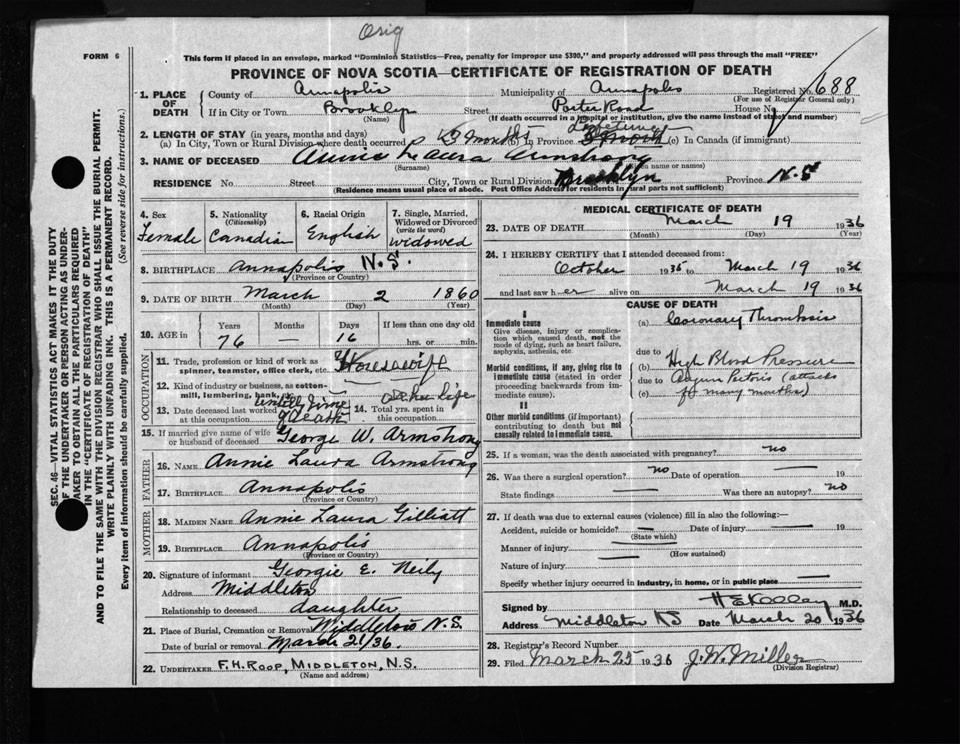 Orig
FORM 6
This form if placed in an envelope, marked "Dominion Statistics—Free, penalty for improper use $300," and properly addressed will pass through the mail "FREE"
PROVINCE OF NOVA SCOTIA—CERTIFICATE OF REGISTRATION OF DEATH
SEC. 46—VITAL STATISTICS ACT MAKES IT THE DUTY
OF THE UNDERTAKER OR PERSON ACTING AS UNDER-
TAKER TO OBTAIN ALL THE PARTICULARS REQUIRED
IN THE "CERTIFICATE OF REGISTRATION OF DEATH"
AND TO FILE THE SAME WITH THE DIVISION REGISTRAR WHO SHALL ISSUE THE BURIAL PERMIT.
WRITE PLAINLY WITH UNFADING INK. THIS IS A PERMANENT RECORD.
Every item of information should be carefully supplied. (See reverse side for instructions.)
1. PLACE OF DEATH County of Annapolis Municipality of Annapolis Registered No. 688
(For use of Registrar General only)
If in City or Town Brooklyn Street Porter Road House No.
(Name) (If death occurred in a hospital or institution, give the name instead of street and number)
2. LENGTH OF STAY (in years, months and days)
(a) In City, Town or Rural Division where death occurred 5 months (b) In Province Life time (c) In Canada (if immigrant)
3. NAME OF DECEASED Annie Laura Armstrong
(Surname) (Given name or names)
RESIDENCE No. Street City, Town or Rural Division Brooklyn Province N.S
(Residence means usual place of abode. Post Office Address for residents in rural parts not sufficient)
4. Sex Female
5. Nationality (Citizenship) Canadian
6. Racial Origin English
7. Single, Married, Widowed or Divorced (write the word) widowed
8. BIRTHPLACE Annapolis N.S.
(Province or Country)
9. DATE OF BIRTH March 2 1860
(Month) (Day) (Year)
10. AGE in Years 76 Months — Days 16 If less than one day old hrs. or min.
OCCUPATION
11. Trade, profession or kind of work as spinner, teamster, office clerk, etc. Housewife
12. Kind of industry or business, as cotton-mill, lumbering, bank,
13. Date deceased last worked at this occupation until time of Death
14. Total yrs. spent in this occupation life
15. If married give name of wife or husband of deceased George W. Armstrong
FATHER
16. NAME Annie Laura Armstrong
17. BIRTHPLACE Annapolis
(Province or Country)
MOTHER
18. MAIDEN NAME Annie Laura Gilliatt
19. BIRTHPLACE Annapolis
(Province or Country)
20. Signature of informant Georgie E. Neily
Address Middleton
Relationship to deceased daughter
21. Place of Burial, Cremation or Removal Middleton N.S.
Date of burial or removal March 21/36.
22. UNDERTAKER F.H. ROOP, MIDDLETON, N.S.
(Name and address)
MEDICAL CERTIFICATE OF DEATH
23. DATE OF DEATH March 19 1936
(Month) (Day) (Year)
24. I HEREBY CERTIFY that I attended deceased from:
October 1935 to March 19 1936
and last saw her alive on March 19 1936
CAUSE OF DEATH
I
Immediate cause
Give disease, injury or complication which caused death, not the mode of dying, such as heart failure, asphyxia, asthenia, etc.
(a) Coronary Thrombosis
due to
Morbid conditions, if any, giving rise to immediate cause (stated in order proceeding backwards from immediate cause).
(b) High Blood Pressure
due to
(c) Angina Pectoris (attacks for many months)
II
Other morbid conditions (if important) contributing to death but not causally related to immediate cause.
25. If a woman, was the death associated with pregnancy? no
26. Was there a surgical operation? no Date of operation — 19
State findings — Was there an autopsy? no
27. If death was due to external causes (violence) fill in also the following:—
Accident, suicide or homicide? — Date of injury — 19
(State which)
Manner of injury —
(How sustained)
Nature of injury —
Specify whether injury occurred in industry, in home, or in public place —
Signed by H E Kelley M.D.
Address Middleton NS Date March 20 1936
28. Registrar's Record Number
29. Filed March 25 1936 J. W. Miller
(Division Registrar)